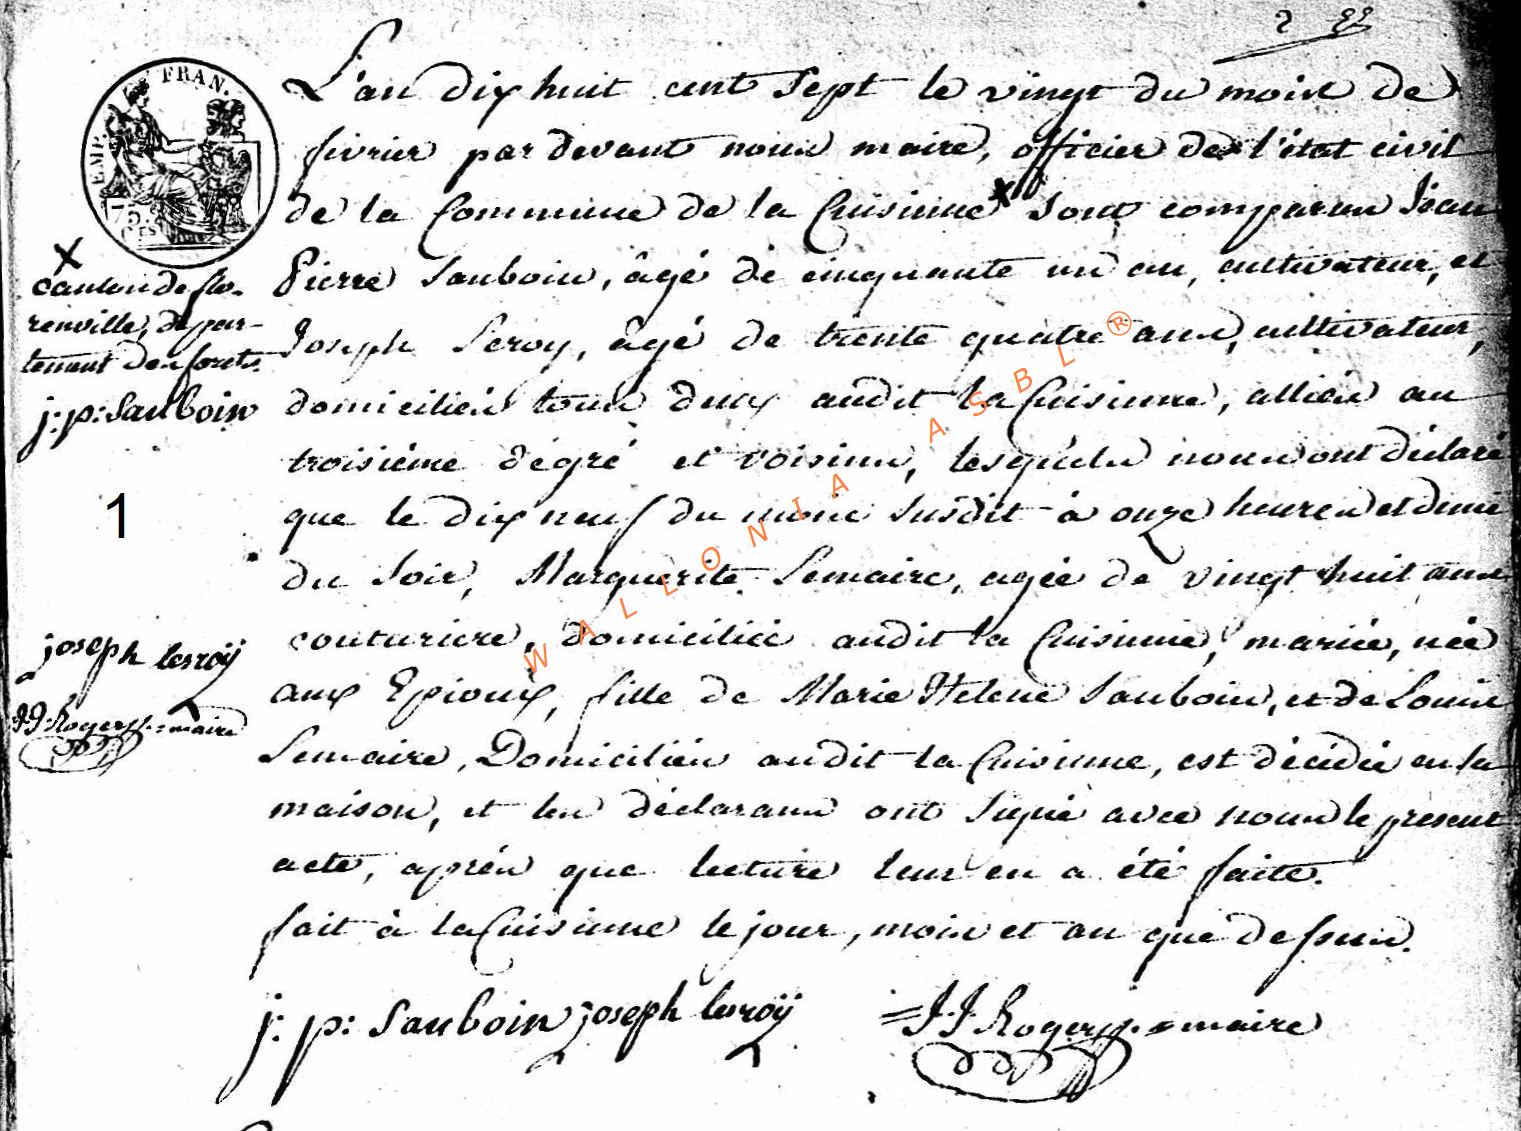 2
FRAN.
EMP.
75.
L'an dix huit cent Sept le vingt du mois de
fivrier par devant nous maire, officier de l'état civil
de la Commune de la Cuisinne x Sont comparus Jean
Pierre Sauboin, âgé de cinquante un an, cultivateur, et
Joseph Leroy, âgé de trente quatre ans, cultivateur,
domiciliés tous deux audit la Cuisinne, alliés au
troisiéme dégré et voisins, lesquels nous ont déclaré
que le dix neuf du mois Susdit à onze heures et demie
du Soir, Marguerite Lemaire, agée de vingt huit ans
couturiere, domiciliée audit la Cuisinne, mariée, née
aux Epioux, fille de Marie Helene Sauboin, et de Louis
Lemaire, Domiciliés audit la Cuisinne, est décédée en la
maison, et les déclarans ont Signé avec nous le present
acte, aprés que lecture leur en a été faite.
fait à la Cuisinne le jour, mois et an que dessus.
j: p: Sauboin joseph leroÿ J. J. Rogers maire
x
canton de flo-
renville, depar-
tement des forets.
j: p: Sauboin
1
joseph leroÿ
J. J. Rogers maire
WALLONIA ASBL ®